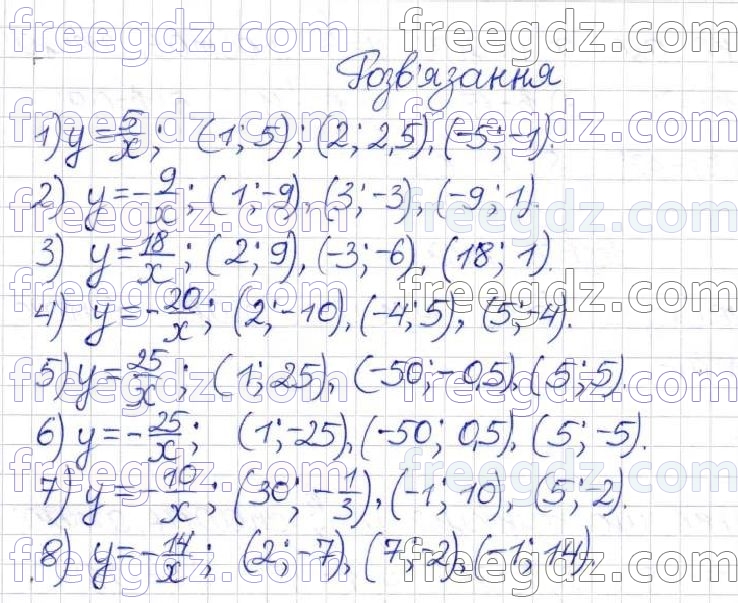 freegdz.com.ua freegdz.com.ua
Розв'язання
1) y = 5/x; (1; 5); (2; 2,5), (-5; -1).
freegdz.com.ua freegdz.com.ua
2) y = -9/x; (1; -9), (3; -3), (-9; 1).
freegdz.com.ua freegdz.com.ua
3) y = 18/x; (2; 9), (-3; -6), (18; 1).
freegdz.com.ua freegdz.com.ua
4) y = -20/x; (2; -10), (-4; 5), (5; -4).
freegdz.com.ua freegdz.com.ua
5) y = 25/x; (1; 25), (-50; -0,5), (5; 5).
freegdz.com.ua freegdz.com.ua
6) y = -25/x; (1; -25), (-50; 0,5), (5; -5).
freegdz.com.ua freegdz.com.ua
7) y = -10/x; (30; -1/3), (-1; 10), (5; -2).
freegdz.com.ua freegdz.com.ua
8) y = -14/x; (2; -7), (7; -2), (-1; 14).